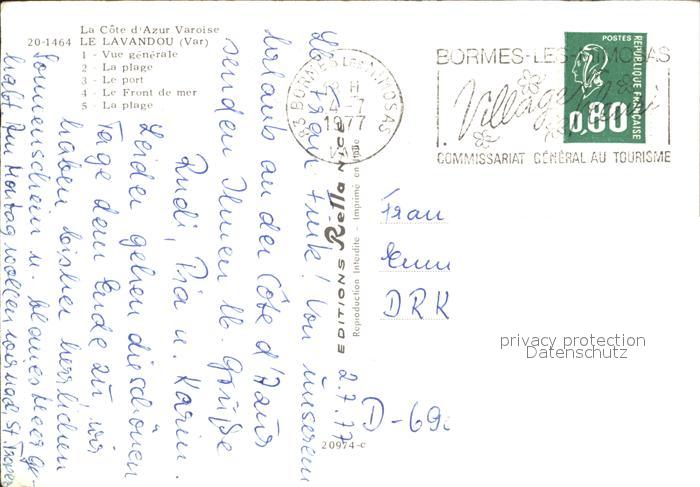 La Côte d'Azur Varoise
20-1464 LE LAVANDOU (Var)
1 - Vue générale
2 - La plage
3 - Le port
4 - Le Front de mer
5 - La plage
83 BORMES LES MIMOSAS
H
4-7
1977
VAR
BORMES-LES-MIMOSAS
Village
COMMISSARIAT GÉNÉRAL AU TOURISME
POSTES
REPUBLIQUE FRANÇAISE
0,80
EDITIONS Rella NICE
Reproduction Interdite - Imprimé en Italie
20974-c
2.7.77
Lb. Frau! Von unserem
Urlaub an der Côte d'Azur
senden Ihnen lb. Grüße
Rudi, Pia u. Karin.
Leider gehen die schönen
Tage dem Ende zu, wir
haben bisher herrlichen
Sonnenschein u. blaues Meer ge-
habt. Am Montag wollen wir nach St. Tropez
Frau
DRK
D-69
privacy protection
Datenschutz